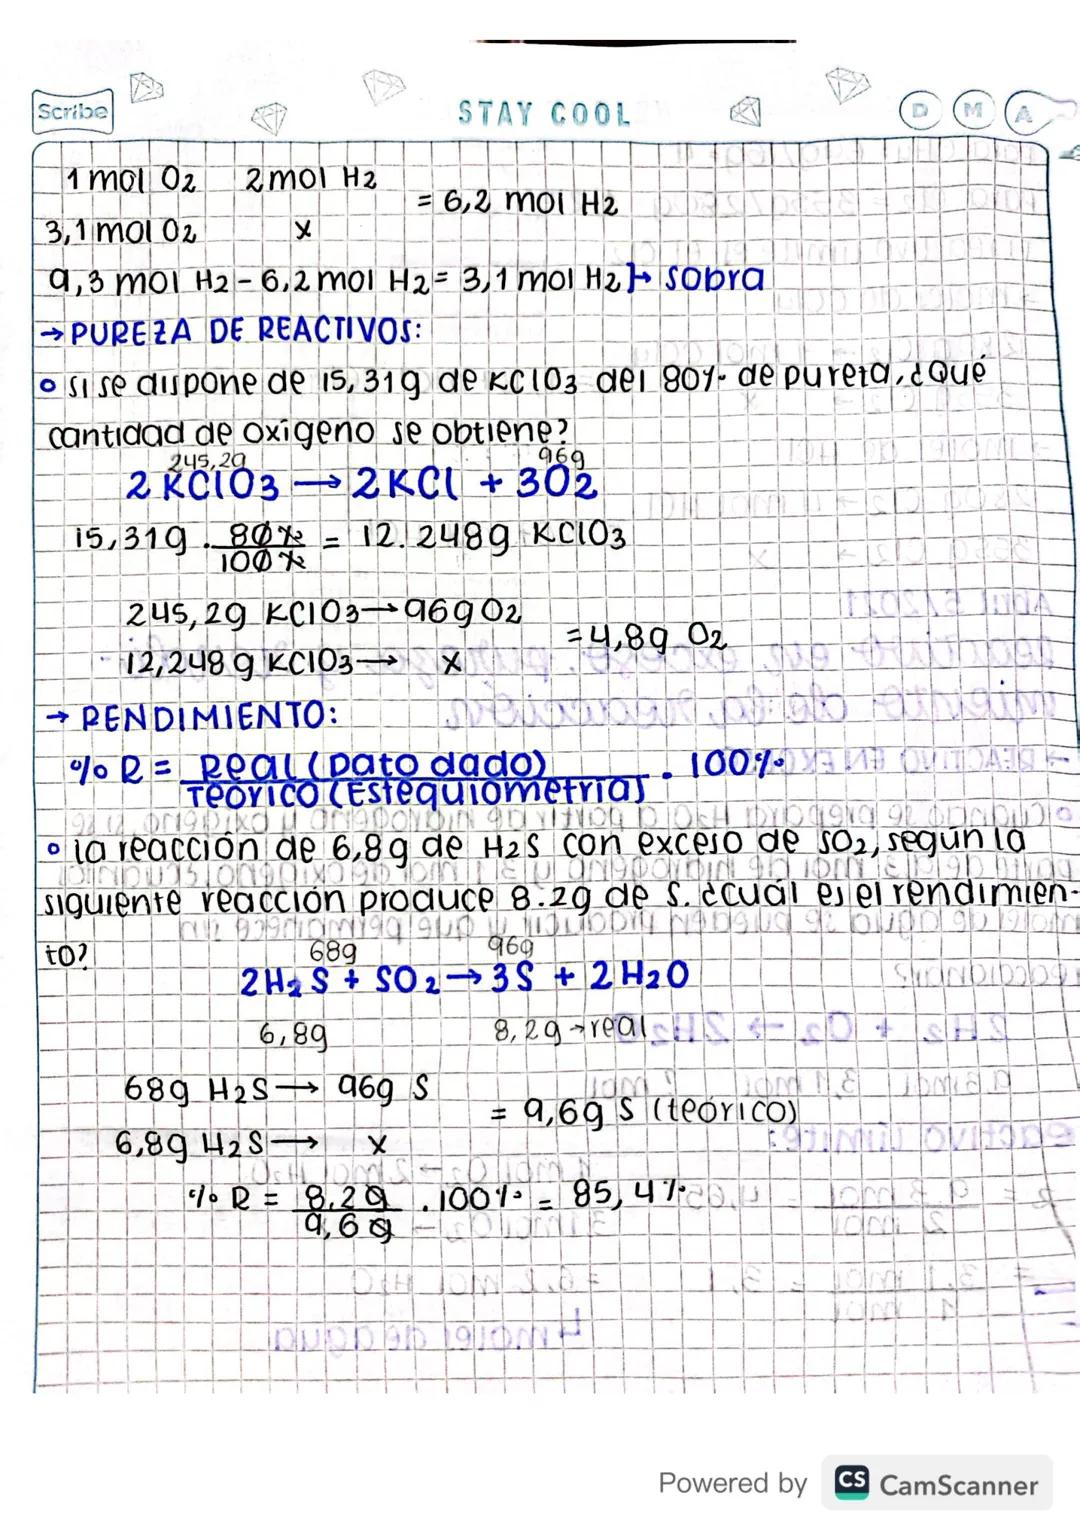 Scribe
STAY COOL
D M A
1 mol O2 2 mol H2
= 6,2 mol H2
3,1 mol O2 x
9,3 mol H2 - 6,2 mol H2 = 3,1 mol H2 }→ sobra
→ PUREZA DE REACTIVOS:
o si se dispone de 15,31g de KClO3 del 80% de pureza, ¿Qué
cantidad de oxigeno se obtiene?
245,2g 96g
2 KClO3 → 2KCl + 3O2
15,31g . 80% / 100% = 12.248g KClO3
245,2g KClO3 → 96g O2
= 4,8g O2
12,248g KClO3 → x
→ RENDIMIENTO:
% R = Real (Dato dado) / Teorico (Estequiometria) . 100%
o la reacción de 6,8g de H2S con exceso de SO2, según la
siguiente reacción produce 8.2g de S. ¿cuál es el rendimien-
to?
68g 96g
2H2S + SO2 → 3S + 2H2O
6,8g 8,2g → real
68g H2S → 96g S
= 9,6g S (teórico)
6,8g H2S → x
% R = 8,2g / 9,6g . 100% = 85,4%
Powered by CS CamScanner